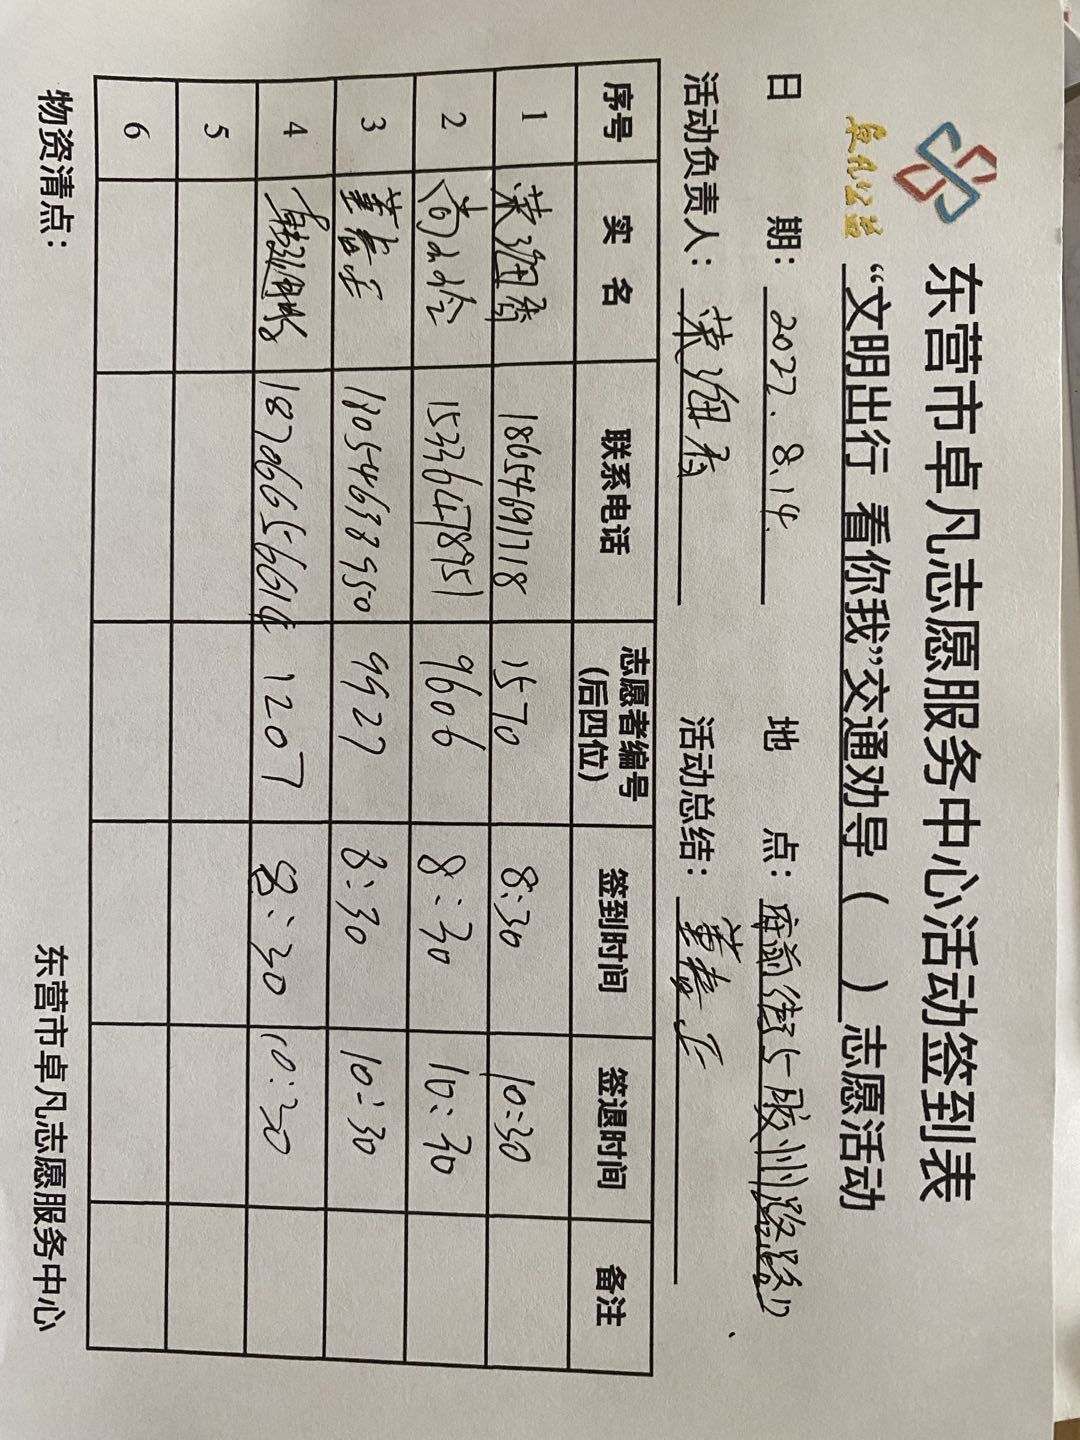 东营市卓凡志愿服务中心活动签到表
卓凡公益
“文明出行 看你我”交通劝导（ ）志愿活动
日 期：2022.8.14. 地 点：府前街与胶州路路口
活动负责人：荣海香 活动总结：董春安
序号 实 名 联系电话 志愿者编号（后四位） 签到时间 签退时间 备注
1 荣海香 18654691718 1570 8:30 10:30
2 尚 15336478951 9606 8:30 10:30
3 董春 18054638950 9927 8:30 10:30
4 18706656614 1207 8:30 10:30
5
6
物资清点：
东营市卓凡志愿服务中心